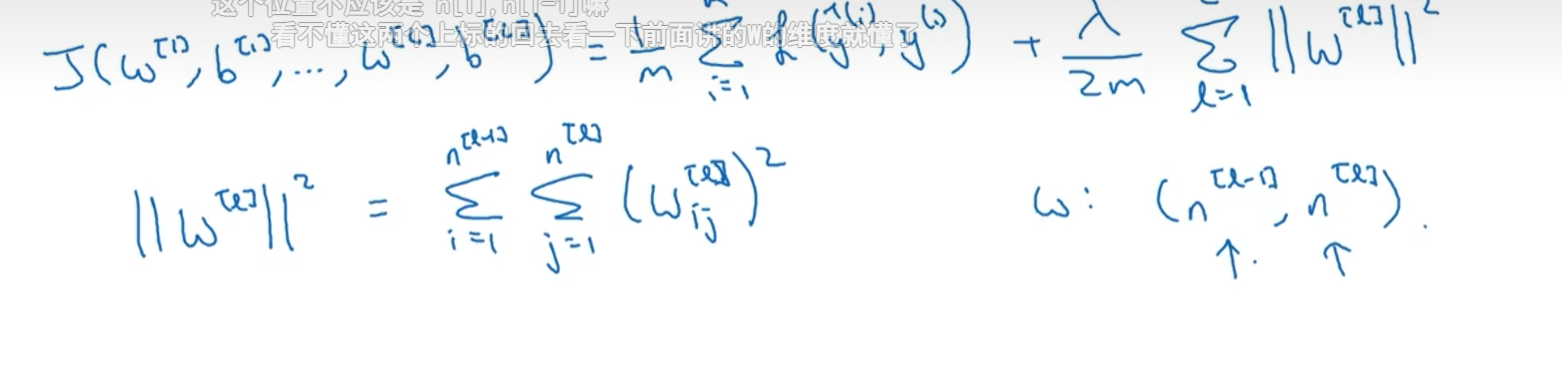 这个位置不应该是 n[l], n[l-1]嘛
看不懂这两个上标的回去看一下前面讲的W的维度就懂了
J(w^[1], b^[1], ..., w^[L], b^[L]) = 1/m Σ_{i=1} ℒ(ŷ^(i), y^(i)) + λ/2m Σ_{l=1} ||w^[l]||²
||w^[l]||² = Σ_{i=1}^{n^[l-1]} Σ_{j=1}^{n^[l]} (w_ij^[l])²
w: (n^[l-1], n^[l]).
↑. ↑